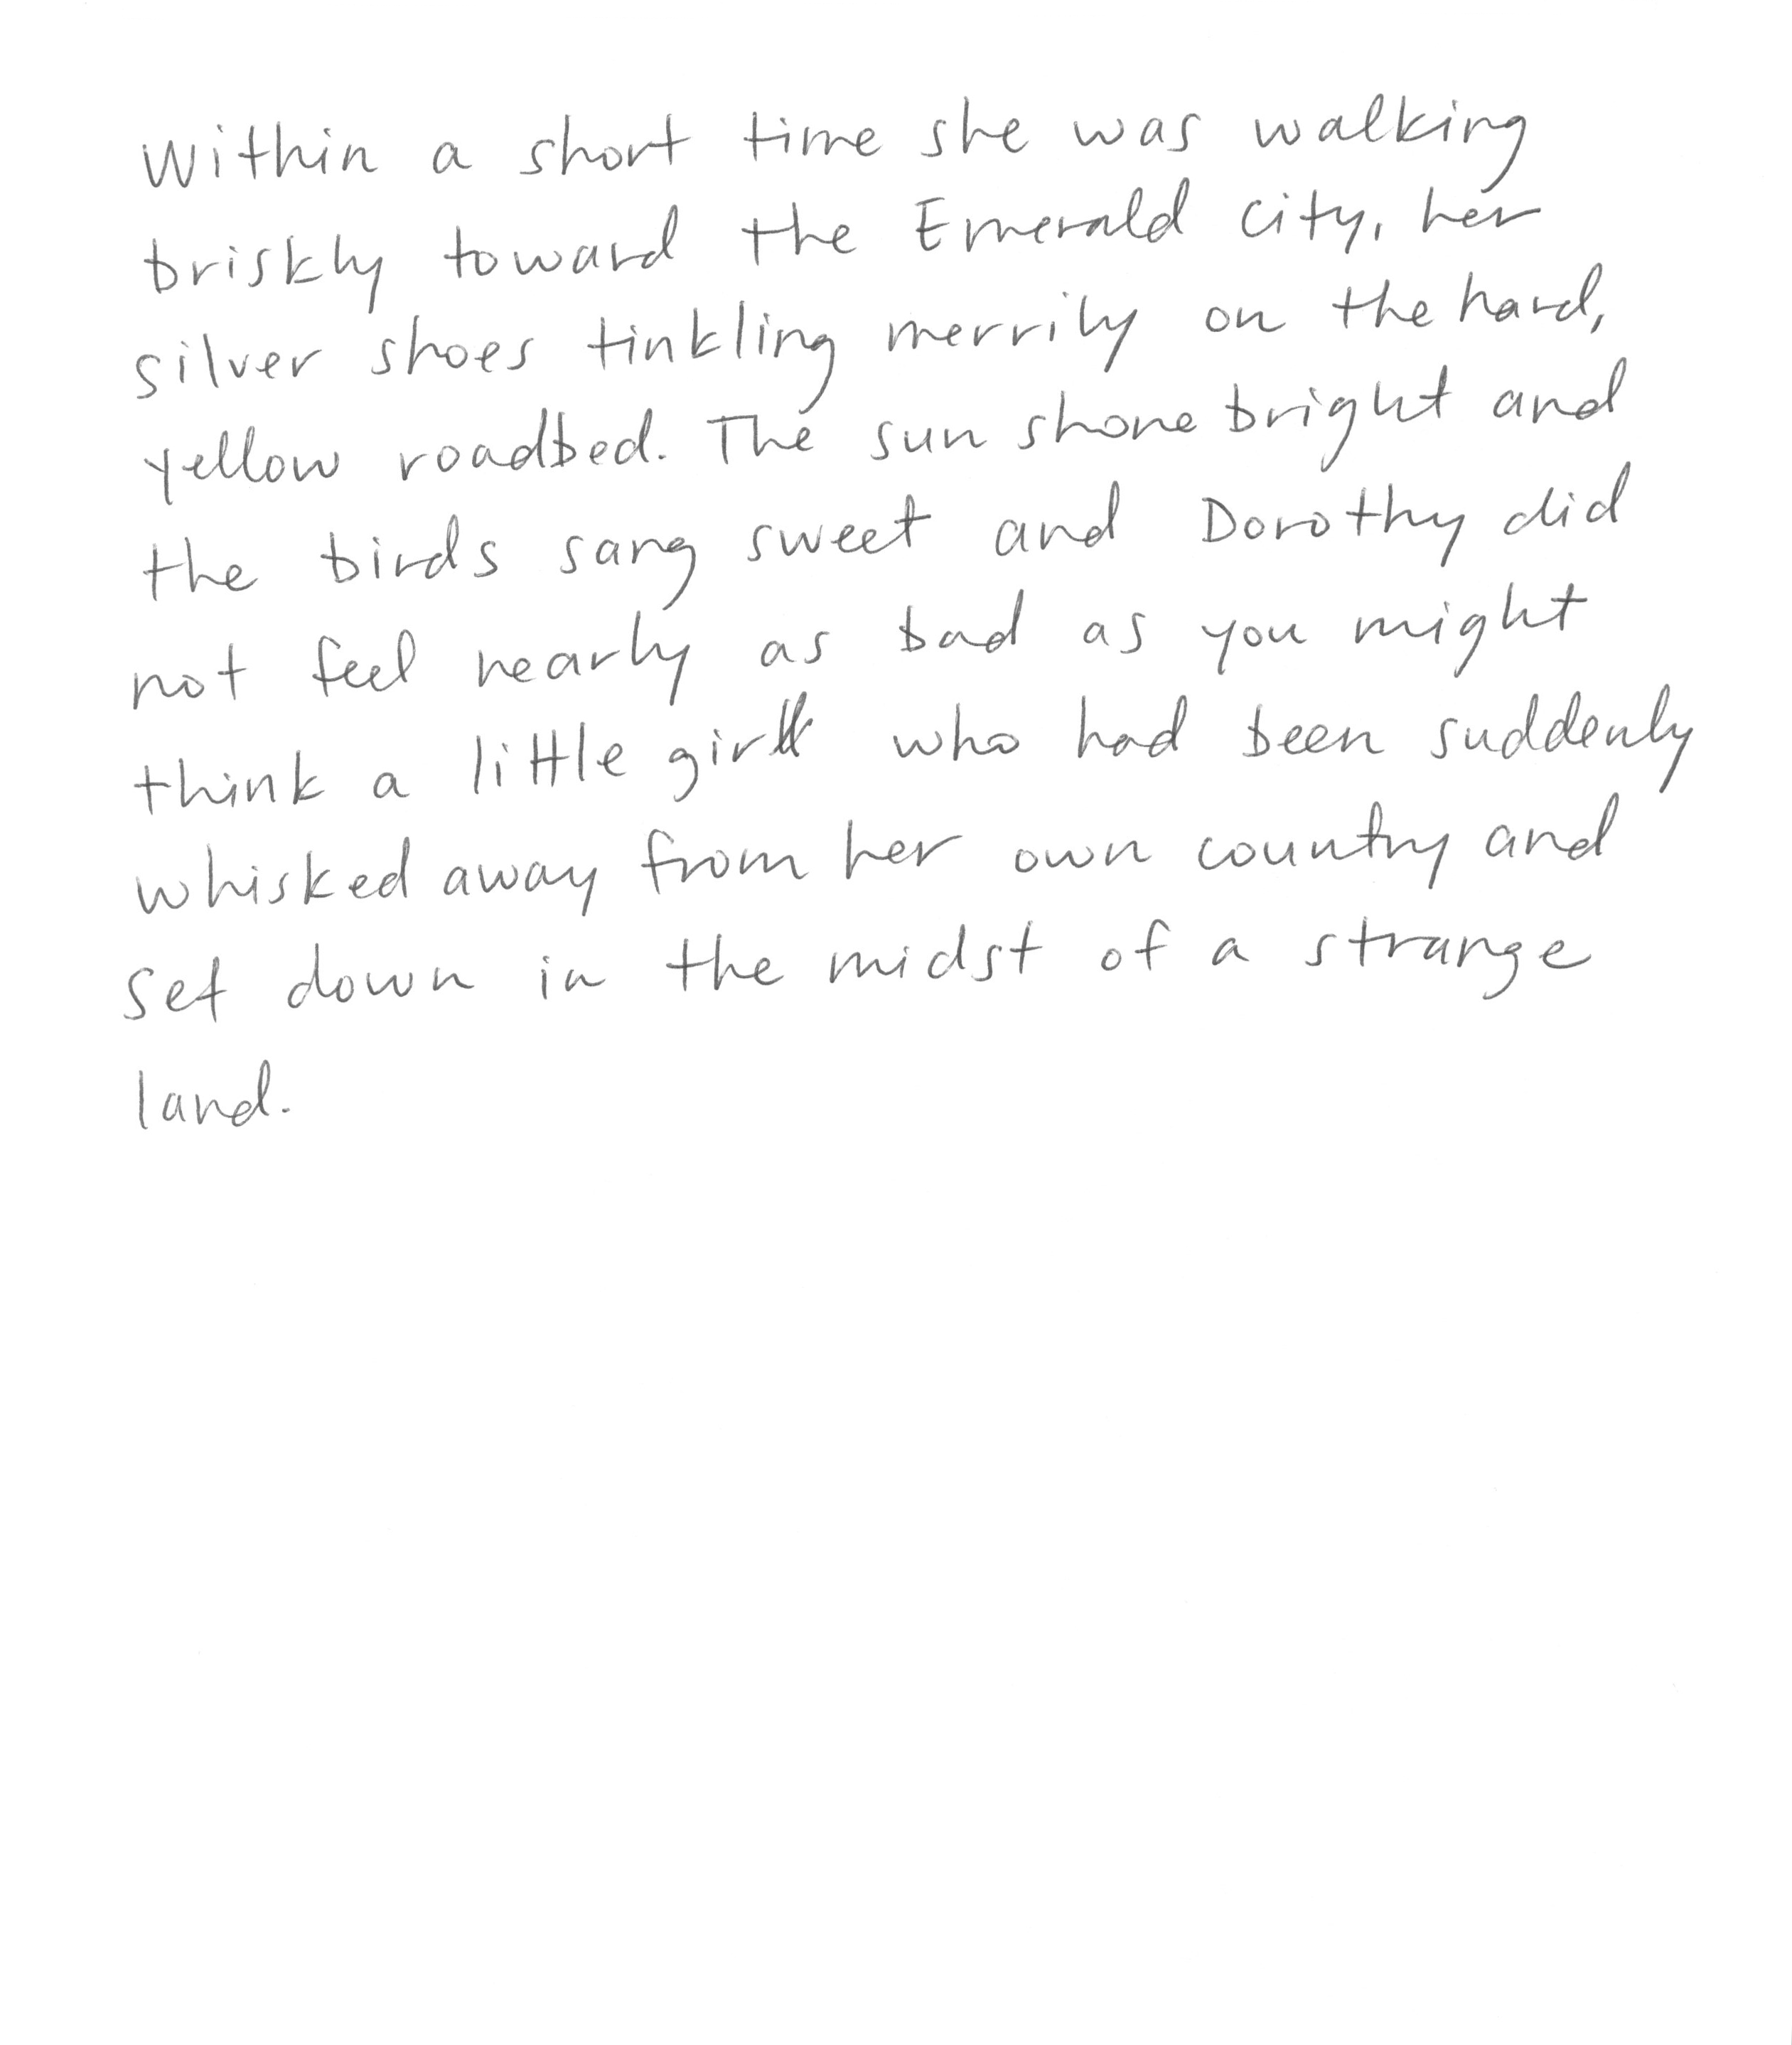 Within a short time she was walking
briskly toward the Emerald City, her
silver shoes tinkling merrily on the hard,
yellow roadbed. The sun shone bright and
the birds sang sweet and Dorothy did
not feel nearly as bad as you might
think a little girl who had been suddenly
whisked away from her own country and
set down in the midst of a strange
land.